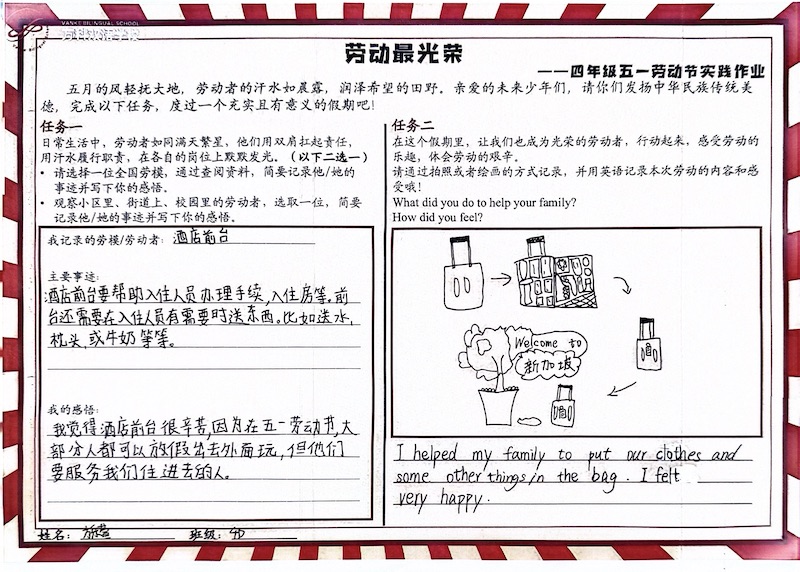 VANKE BILINGUAL SCHOOL
万科双语学校
劳动最光荣
——四年级五一劳动节实践作业
五月的风轻抚大地，劳动者的汗水如晨露，润泽希望的田野。亲爱的未来少年们，请你们发扬中华民族传统美
德，完成以下任务，度过一个充实且有意义的假期吧！
任务一
日常生活中，劳动者如同满天繁星，他们用双肩扛起责任，
用汗水履行职责，在各自的岗位上默默发光。（以下二选一）
• 请选择一位全国劳模，通过查阅资料，简要记录他/她的
事迹并写下你的感悟。
• 观察小区里、街道上、校园里的劳动者，选取一位，简要
记录他/她的事迹并写下你的感悟。
我记录的劳模/劳动者：酒店前台
主要事迹：
酒店前台要帮助入住人员办理手续，入住房等。前
台还需要在入住人员有需要时送东西。比如送水，
枕头，或牛奶等等。
我的感悟：
我觉得酒店前台很辛苦，因为在五一劳动节，大
部分人都可以放假出去外面玩，但他们
要服务我们住进去的人。
姓名： 班级：4D
任务二
在这个假期里，让我们也成为光荣的劳动者，行动起来，感受劳动的
乐趣，体会劳动的艰辛。
请通过拍照或者绘画的方式记录，并用英语记录本次劳动的内容和感
受哦！
What did you do to help your family?
How did you feel?
Welcome to
新加坡
I helped my family to put our clothes and
some other things in the bag. I felt
very happy.